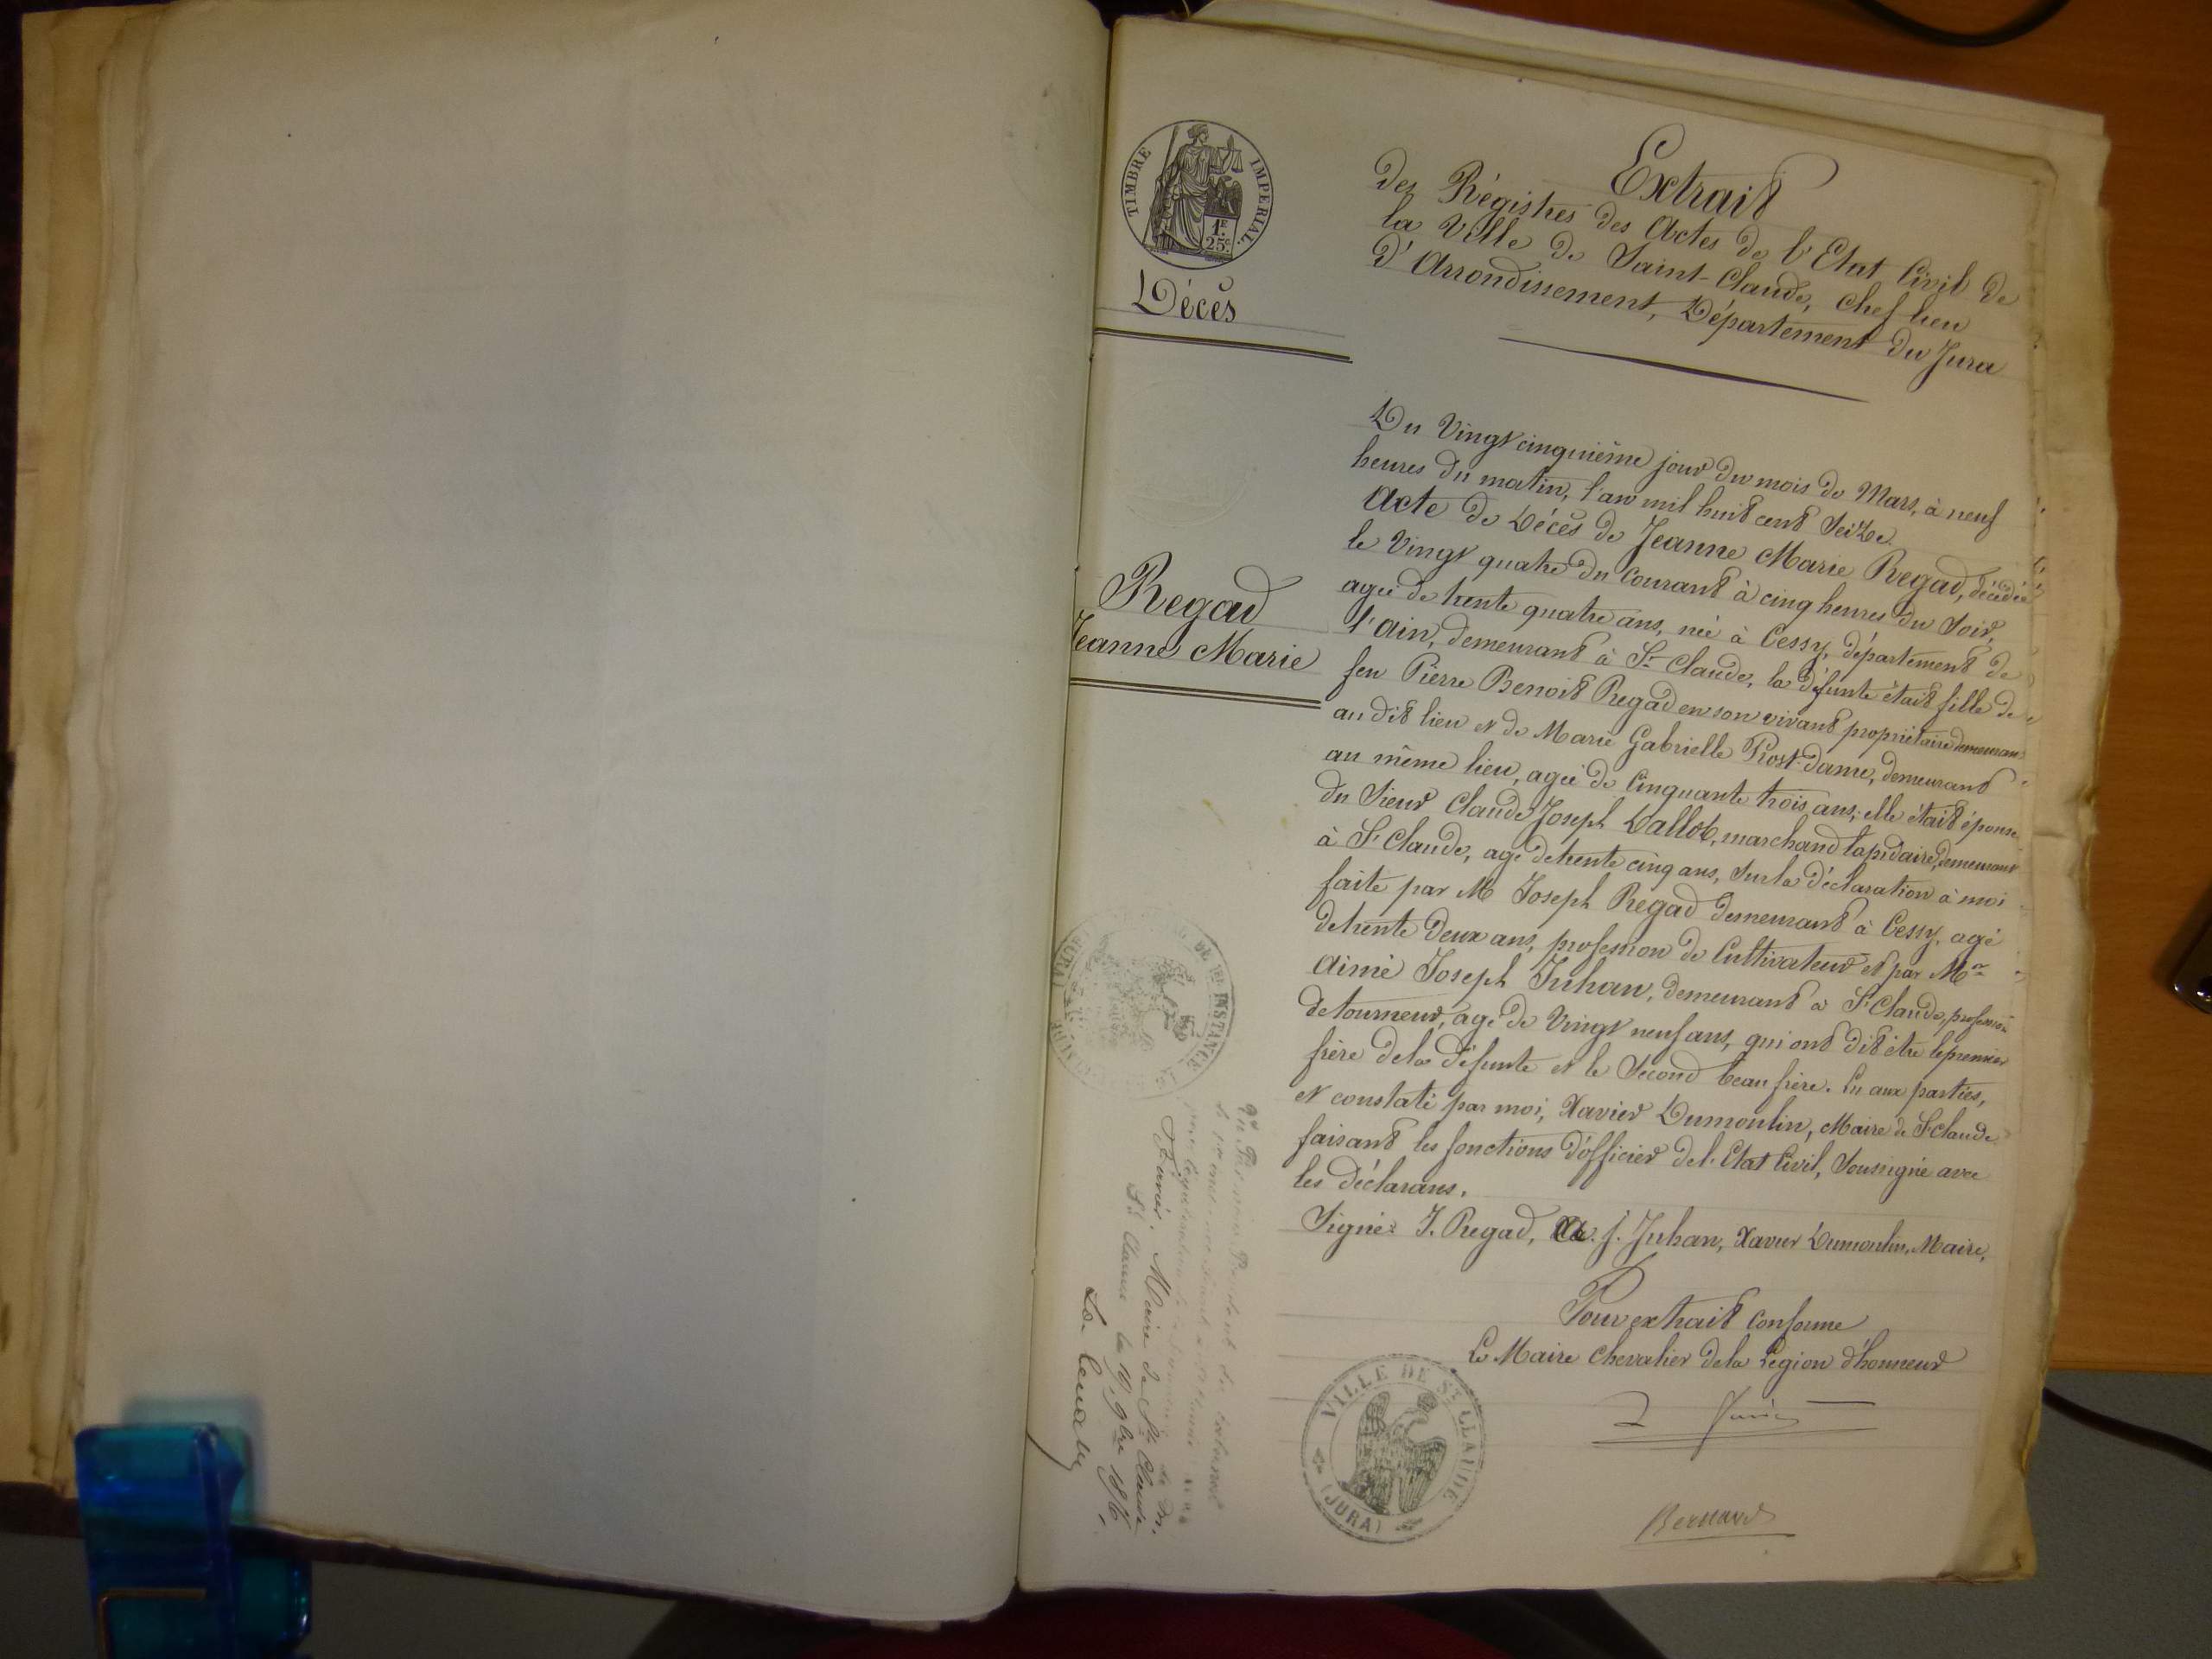 TIMBRE IMPERIAL.
1F.
25c
Décès
Extrait
des Régistres des Actes de l'Etat Civil de
la Ville de Saint-Claude, Chef lieu
d'Arrondissement, Département du Jura
Du Vingt cinquième jour du mois de Mars, à neuf
heures du matin, l'an mil huit cent Seize.
Acte de Décès de Jeanne Marie Regad, décédée
le Vingt quatre du Courant à cinq heures du Soir,
agée de trente quatre ans, née à Cessy, département de
l'Ain, demeurant à St Claude, la défunte était fille de
feu Pierre Benoit Regad en son vivant propriétaire demeurant
au dit lieu et de Marie Gabrielle Prost-dame, demeurant
au même lieu, agée de Cinquante trois ans; elle était épouse
du Sieur Claude Joseph Dalloz, marchand lapidaire, demeurant
à St Claude, agé de trente cinq ans, Sur la déclaration à moi
faite par M Joseph Regad demeurant à Cessy, agé
de trente deux ans, profession de Cultivateur et par Mr
Aimé Joseph Juhan, demeurant à St Claude, profession
de tourneur, agé de Vingt neuf ans, qui ont dit être le premier
frère de la défunte et le Second beau frère. Lu aux parties,
et constaté par moi, Xavier Dumoulin, Maire de St Claude
faisant les fonctions d'officier de l'Etat Civil, Soussigné avec
les déclarans.
Signé: J. Regad, A. J. Juhan, Xavier Dumoulin, Maire,
Pour extrait conforme
Le Maire Chevalier de la Légion d'honneur
Bernard
VILLE DE ST CLAUDE
(JURA)
Regad
Jeanne Marie
INSTANCE
(JURA)
Maire de St Claude
St Claude le 19 9bre 18